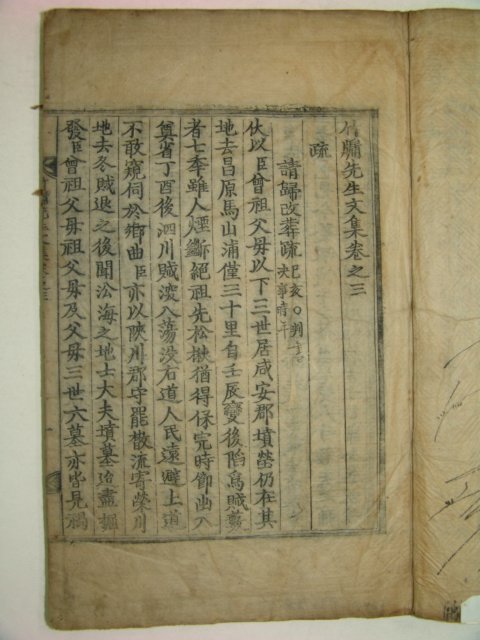 竹牖先生文集卷之三
疏
請歸改葬疏 己亥○朝
伏以臣曾祖父母以下三世居咸安郡墳塋仍在其
地去昌原馬山浦僅三十里自壬辰變後陷爲賊藪
者七季雖人煙斷絕祖先松楸猶得保完時節曲入
奠省丁酉後泗川賊衝入蕩沒右道人民遠避上道
不敢窺伺於鄕曲臣亦以陜川郡守罷散流寄榮川
地去冬賊退之後聞沿海之地士大夫墳墓迨盡掘
發臣曾祖父母祖父母及父母三世六墓亦皆見